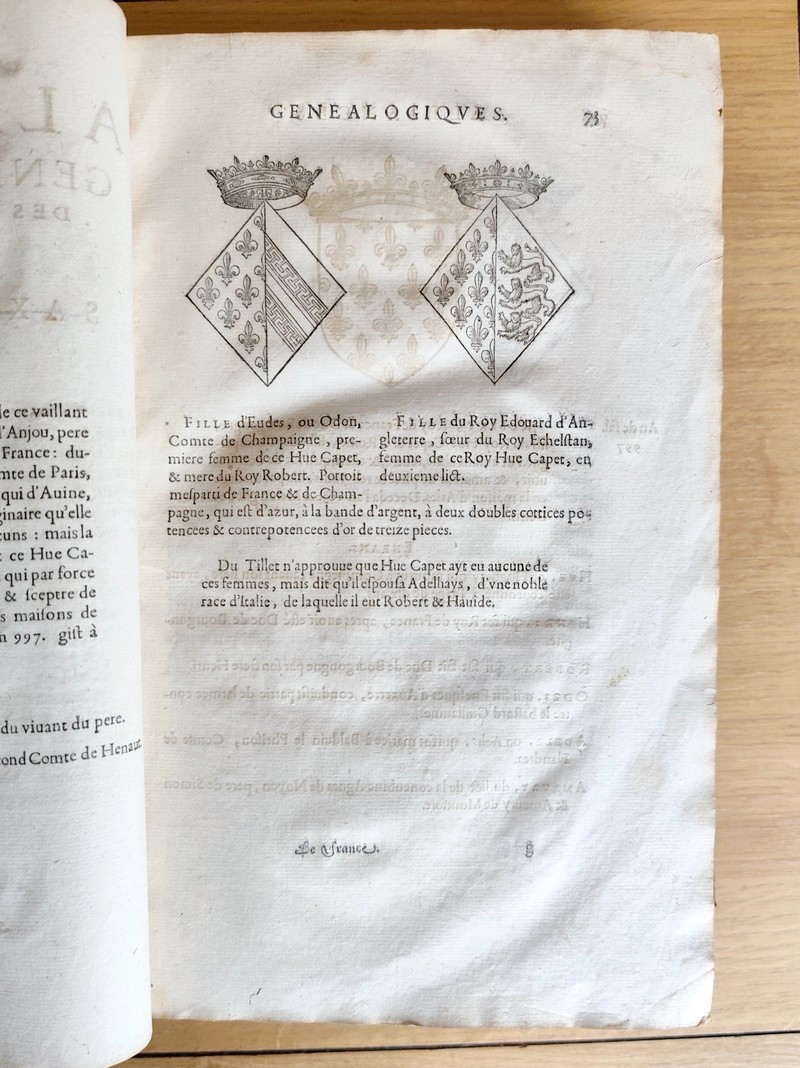 le ce vaillant
l'Anjou, pere
France: du-
mte de Paris,
qui d'Auine,
ginaire qu'elle
cuns : mais la
: ce Hue Ca-
qui par force
& ſceptre de
s maiſons de
n 997. giſt à
du viuant du pere.
ond Comte de Henaut
GENEALOGIQVES. 73
FILLE d'Eudes, ou Odon,
Comte de Champaigne, pre-
miere femme de ce Hue Capet,
& mere du Roy Robert. Portoit
meſparti de France & de Cham-
FILLE du Roy Edouard d'An-
gleterre, ſœur du Roy Echelſtan,
femme de ce Roy Hue Capet, en
deuxieme lict.
pagne, qui eſt d'azur, à la bande d'argent, à deux doubles cottices po-
tencees & contrepotencees d'or de treize pieces.
Du Tillet n'approuue que Hue Capet ayt eu aucune de
ces femmes, mais dit qu'il eſpouſa Adelhays, d'vne noble
race d'Italie, de laquelle il eut Robert & Hauide.
De France. g